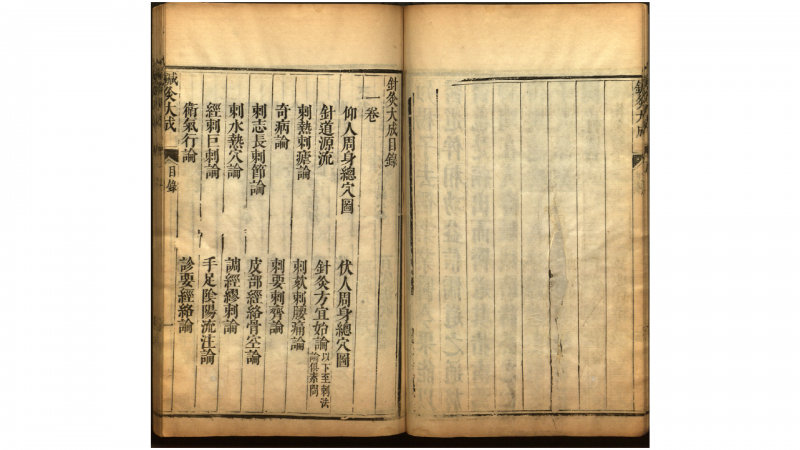 針灸大成
針灸大成目錄
一卷
仰人周身總穴圖
伏人周身總穴圖
針道源流
針灸方宜始論 以下至刺法論俱素問
刺熱刺瘧論
刺欬刺腰痛論
奇病論
刺要刺齊論
刺志長刺節論
皮部經絡骨空論
刺水熱穴論
調經繆刺論
經刺巨刺論
手足陰陽流注論
衛氣行論
診要經絡論
鍼灸大成
目錄
一